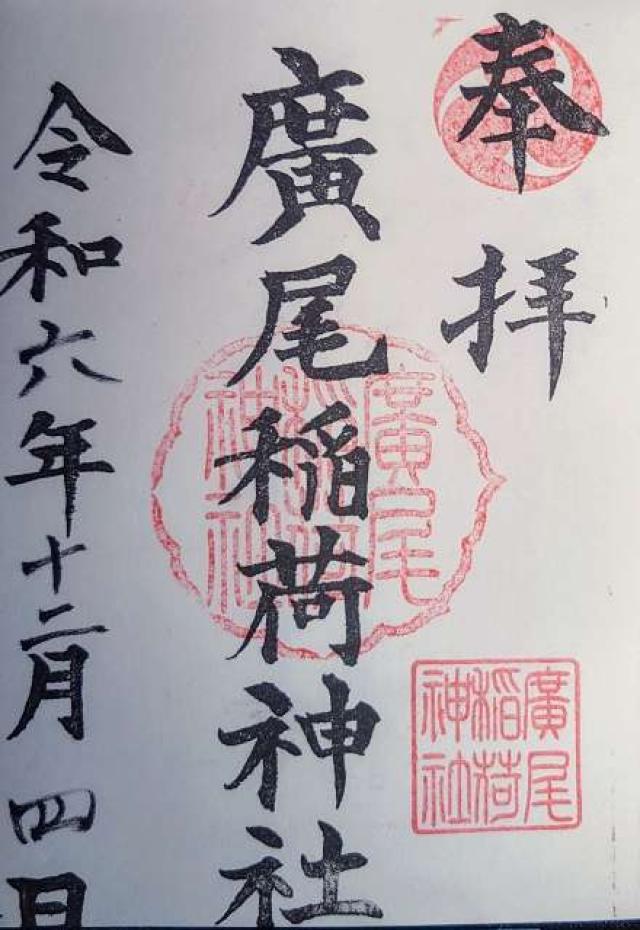 奉拝
廣尾稲荷神社
令和六年十二月四日
廣尾
稲荷
神社
廣尾
稲荷
神社